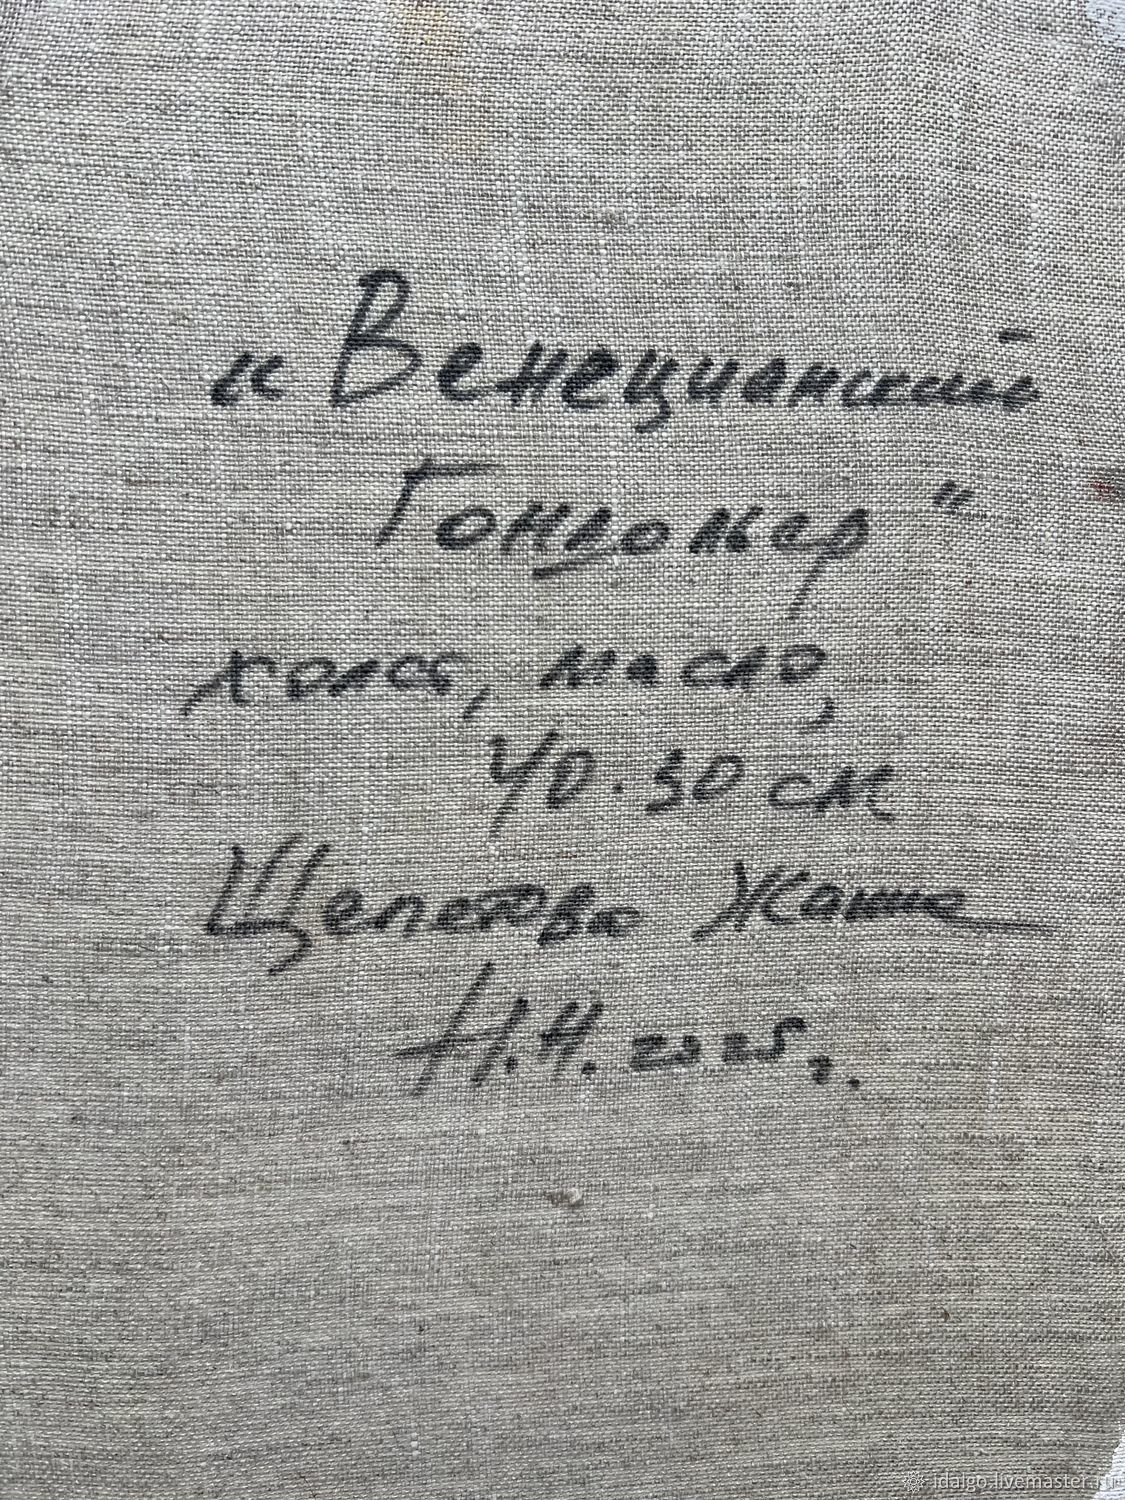 "Венецианский
Гондольер"
холст, масло,
40.30 см
Щепетова Жанна
Н.Н. 2025г.
idalgo.livemaster.ru